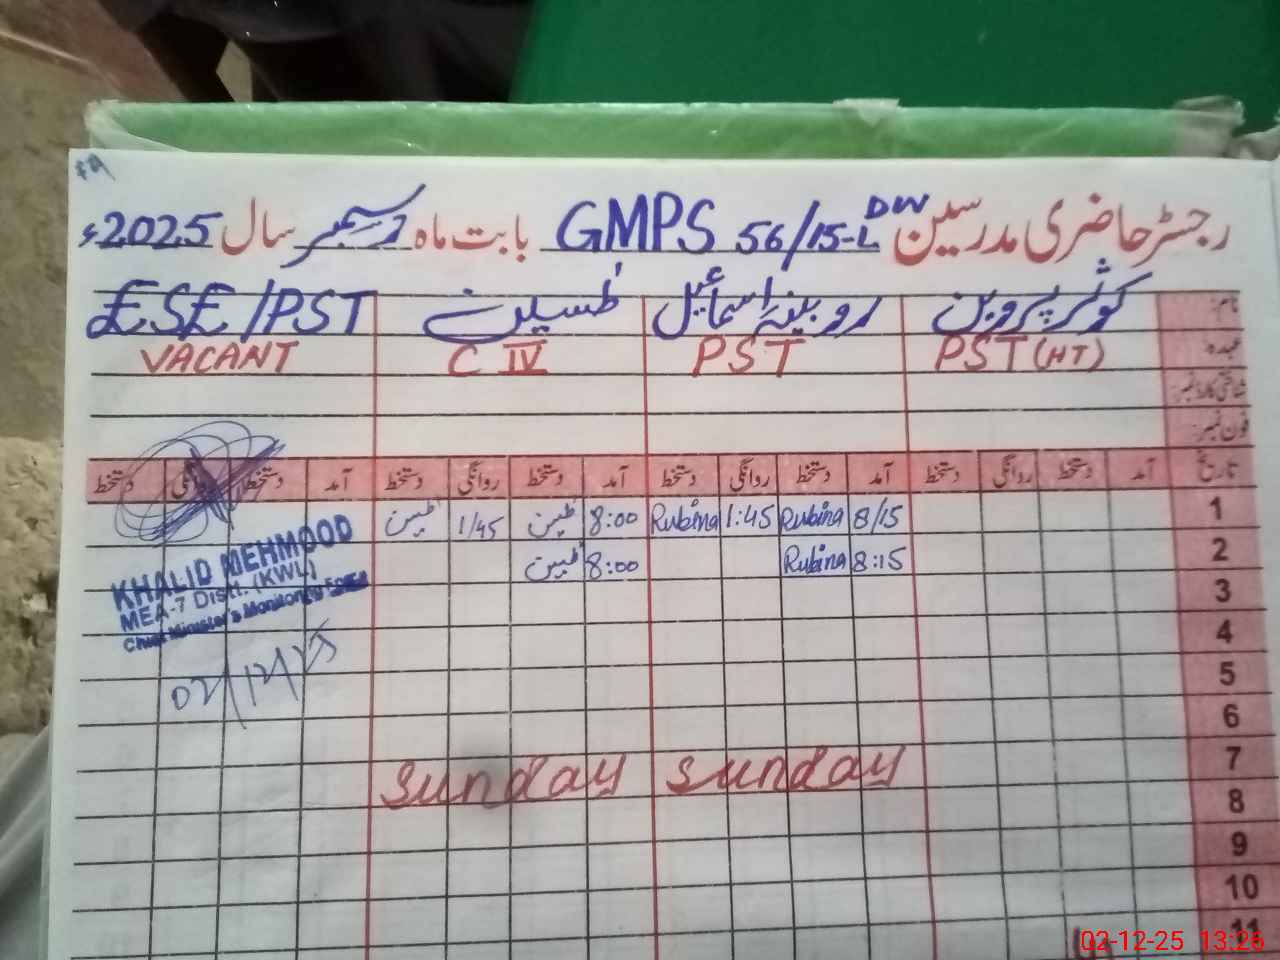 رجسٹر حاضری مدرسین GMPS 56/15-L DW بابت ماہ دسمبر سال 2025ء
نام: کوثر پروین روبینہ اسماعیل ESE/PST
عہدہ: PST (HT) PST C IV VACANT
شناختی کارڈ نمبر:
فون نمبر:
تاریخ آمد دستخط روانگی دستخط آمد دستخط روانگی دستخط آمد دستخط روانگی دستخط آمد دستخط روانگی دستخط
1 8/15 Rubina 1:45 Rubina 8:00 1/45
2 8:15 Rubina 8:00
3
4
5
6
7 Sunday Sunday
8
9
10
11
KHALID MEHMOOD
MEA-7 Distt. (KWL)
Chief Minister's Monitoring Force
02/12/25
02-12-25 13:26